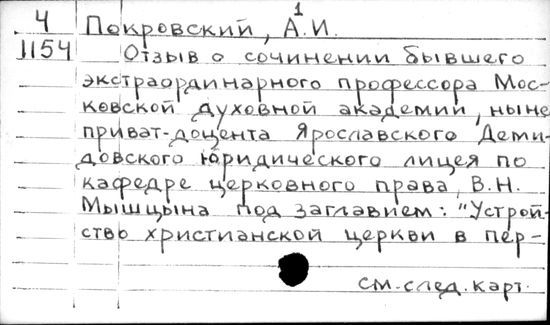 4 Покровский, А.И.
1
1154 Отзыв о сочинении бывшего
экстраординарного профессора Мос-
ковской духовной академии, ныне
приват-доцента Ярославского Деми-
довского юридического лицея по
кафедре церковного права, В.Н.
Мышцына под заглавием: "Устрой-
ство христианской церкви в пер-
см. след. карт.